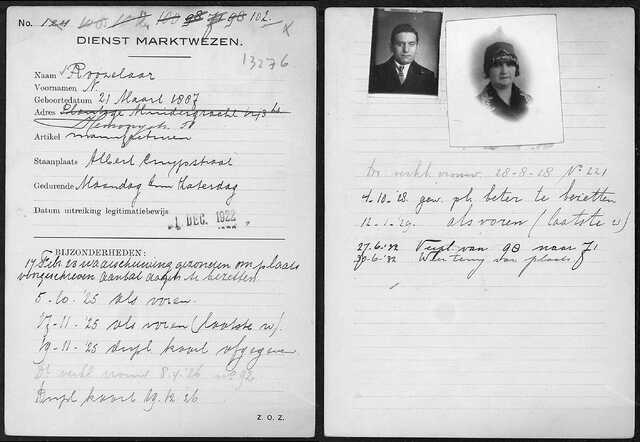 No. 124 100 102.
DIENST MARKTWEZEN.
13276
Naam Rooselaar
Voornamen N.
Geboortedatum 21 Maart 1887
Adres Plantage Muidergracht
Artikel manufacturen
Staanplaats Albert Cuypstraat
Gedurende Maandag t/m Zaterdag
Datum uitreiking legitimatiebewijs
1 DEC. 1922
BIJZONDERHEDEN:
17 Feb. 23 waarschuwing gezonden om plaats
voorgeschreven aantal dagen te bezetten
5-10-'25 als voren.
17-11-'25 als voren (laatste w).
19-11-'25 dupl kaart afgegeven
8.4.'26 No 92
Dupl kaart 19.12.26
Z. O. Z.
28-8-28 No 221
4.10.'28 gew. pl. beter te bezetten
12-1-'29. als voren (laatste w)
27.6.'32 Verpl van 98 naar 71
30.6.'32 van plaats